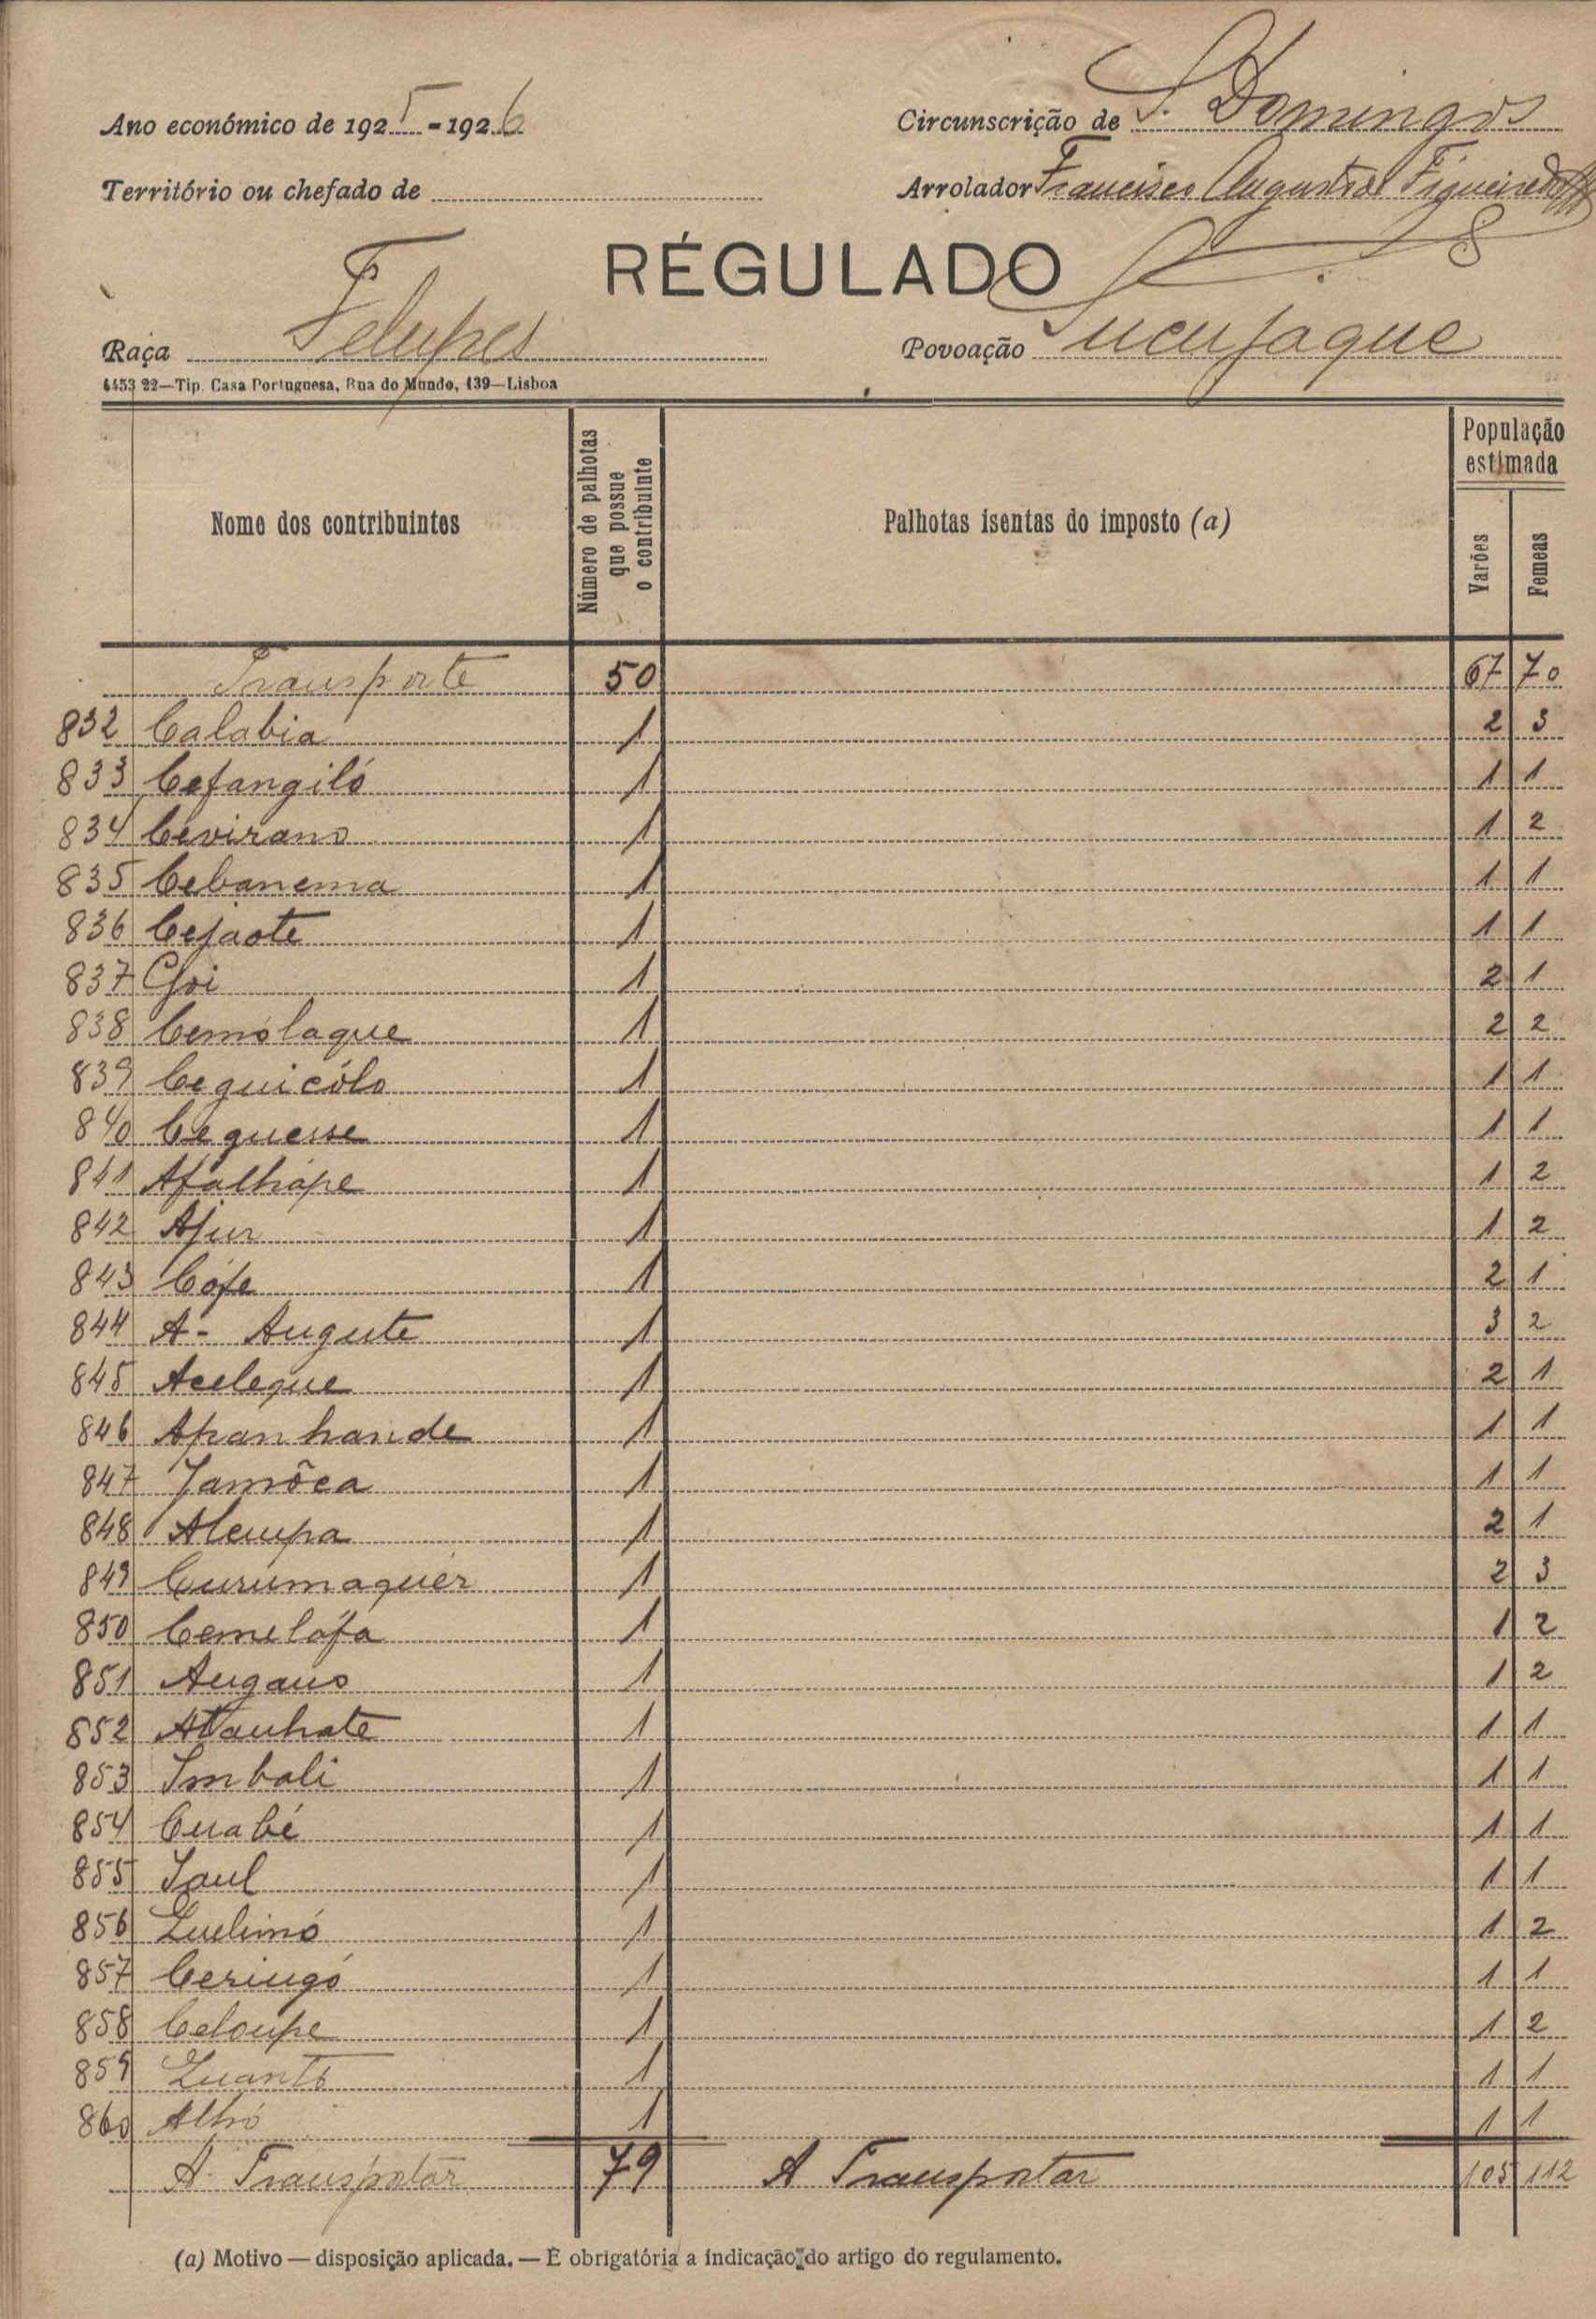 Ano económico de 1925-1926
Circunscrição de S. Domingos
Território ou chefado de
Arrolador Francisco Augusto Figueiredo
RÉGULADO
Raça Felupes
Povoação Sucujaque
4453 22—Tip. Casa Portuguesa, Rua do Mundo, 139—Lisboa
Nome dos contribuintes
Número de palhotas que possue o contribuinte
Palhotas isentas do imposto (a)
População estimada
Varões
Femeas
Transporte 50 67 70
832 Calabia 1 2 3
833 Cefangiló 1 1 1
834 Cevirano 1 1 2
835 Cebanema 1 1 1
836 Cejaote 1 1 1
837 1 2 1
838 Cemólaque 1 2 2
839 Cequicólo 1 1 1
840 Ceguesse 1 1 1
841 Afalhápe 1 1 2
842 Ajur 1 1 2
843 Cófe 1 2 1
844 A- Augute 1 3 2
845 Aceleque 1 2 1
846 Apanhande 1 1 1
847 Jamôca 1 1 1
848 Alempa 1 2 1
849 Curumaquer 1 2 3
850 Cemelófa 1 1 2
851 Augano 1 1 2
852 1 1 1
853 Imbali 1 1 1
854 Cuabé 1 1 1
855 1 1 1
856 Luelimó 1 1 2
857 Ceringó 1 1 1
858 Celoupe 1 1 2
859 Luantó 1 1 1
860 Alhó 1 1 1
A Transportar 79 A Transportar 105 112
(a) Motivo — disposição aplicada. — É obrigatória a indicação do artigo do regulamento.